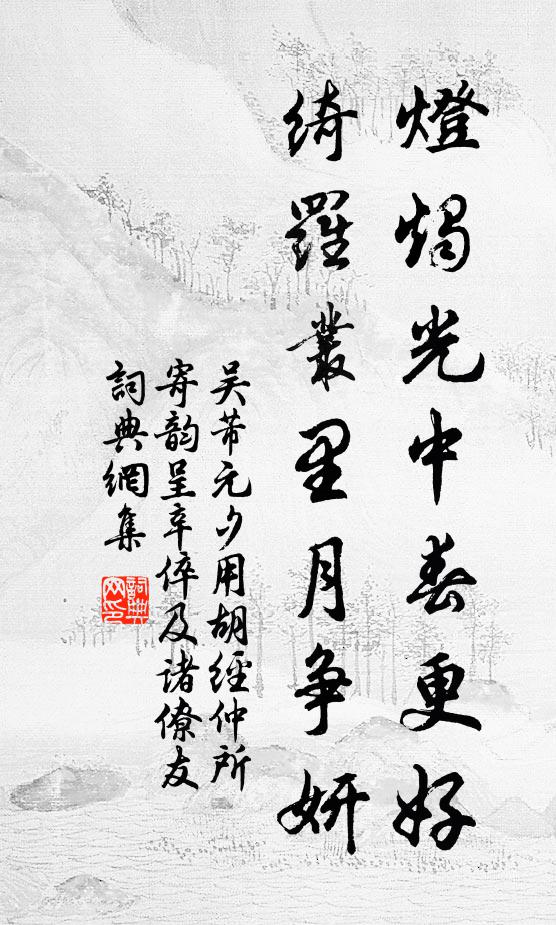 燈燭光中春更好
綺羅叢里月爭妍
吴芾元夕用胡經仲所
寄韵呈辛倅及诸僚友
詞典網集
詞典網印